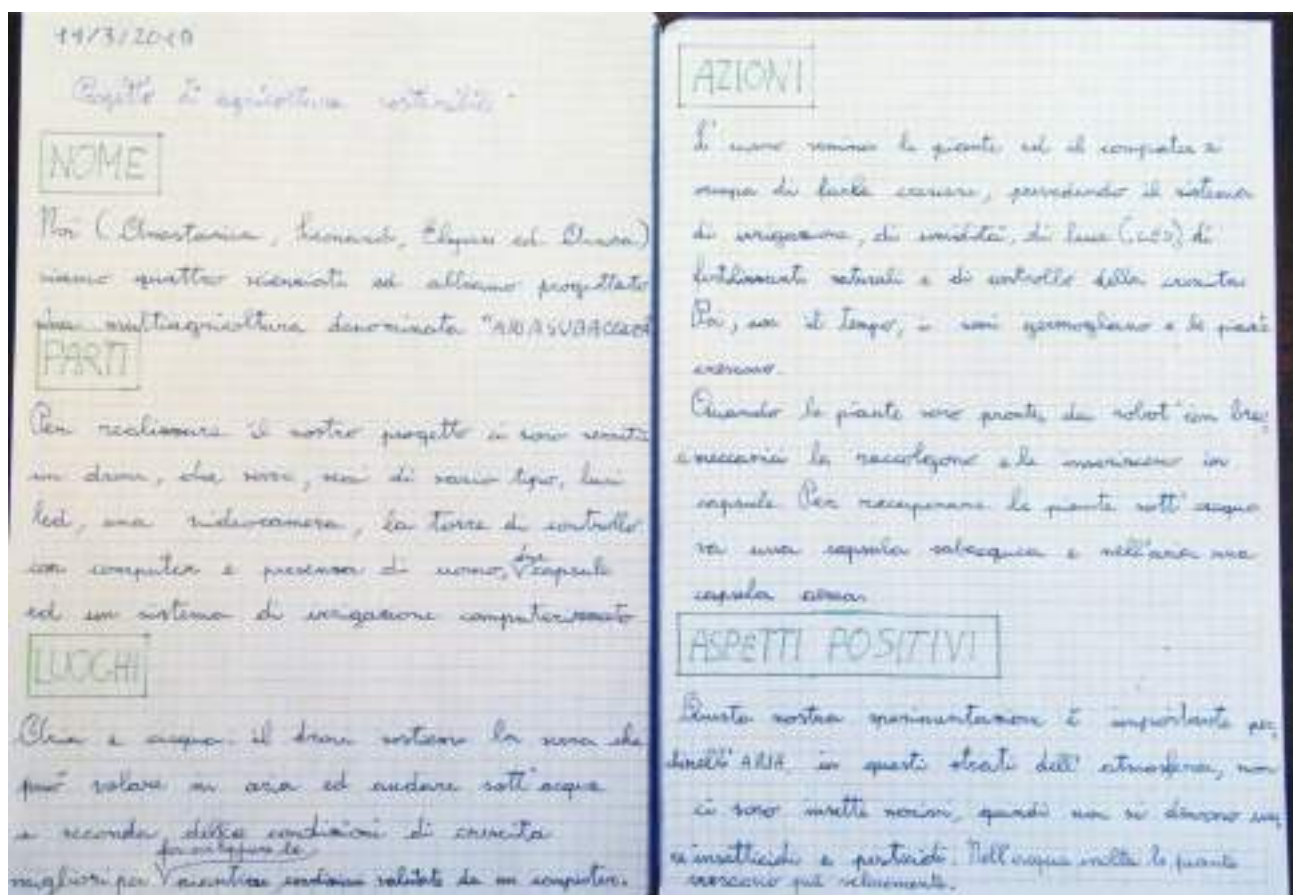 Progetto di agricoltura sostenibile
NOME
Noi (Anastasia, Leonardo, ed
siamo quattro scienziati ed abbiamo progettato
una multiagricoltura denominata
PARTI
Per realizzare il nostro progetto ci sono serviti
un drone, due serre, semi di vario tipo, luci
led, una videocamera, la torre di controllo
con computer e presenza di uomo, due capsule
ed un sistema di irrigazione computerizzato
LUOGHI
Aria e acqua. il drone sostiene la serra che
può volare in aria ed andare sott'acqua
a seconda delle condizioni di crescita
migliori per far sviluppare le valutate da un computer.
AZIONI
L'uomo semina le piante ed il computer si
occupa di farle crescere, prevedendo il sistema
di irrigazione, di umidità, di luce (LED), di
fertilizzanti naturali e di controllo della crescita
Poi, con il tempo, i semi germogliano e le piante
crescono.
Quando le piante sono pronte, dei robot con
meccanici le raccolgono e le inseriscono in
capsule. Per recuperare le piante sott'acqua
va una capsula subacquea e nell'aria una
capsula aerea.
ASPETTI POSITIVI
Questa nostra sperimentazione è importante
nell'ARIA, in questi strati dell'atmosfera, non
ci sono insetti nocivi, quindi non si devono
insetticidi e pesticidi. Nell'acqua inoltre le piante
crescono più velocemente.